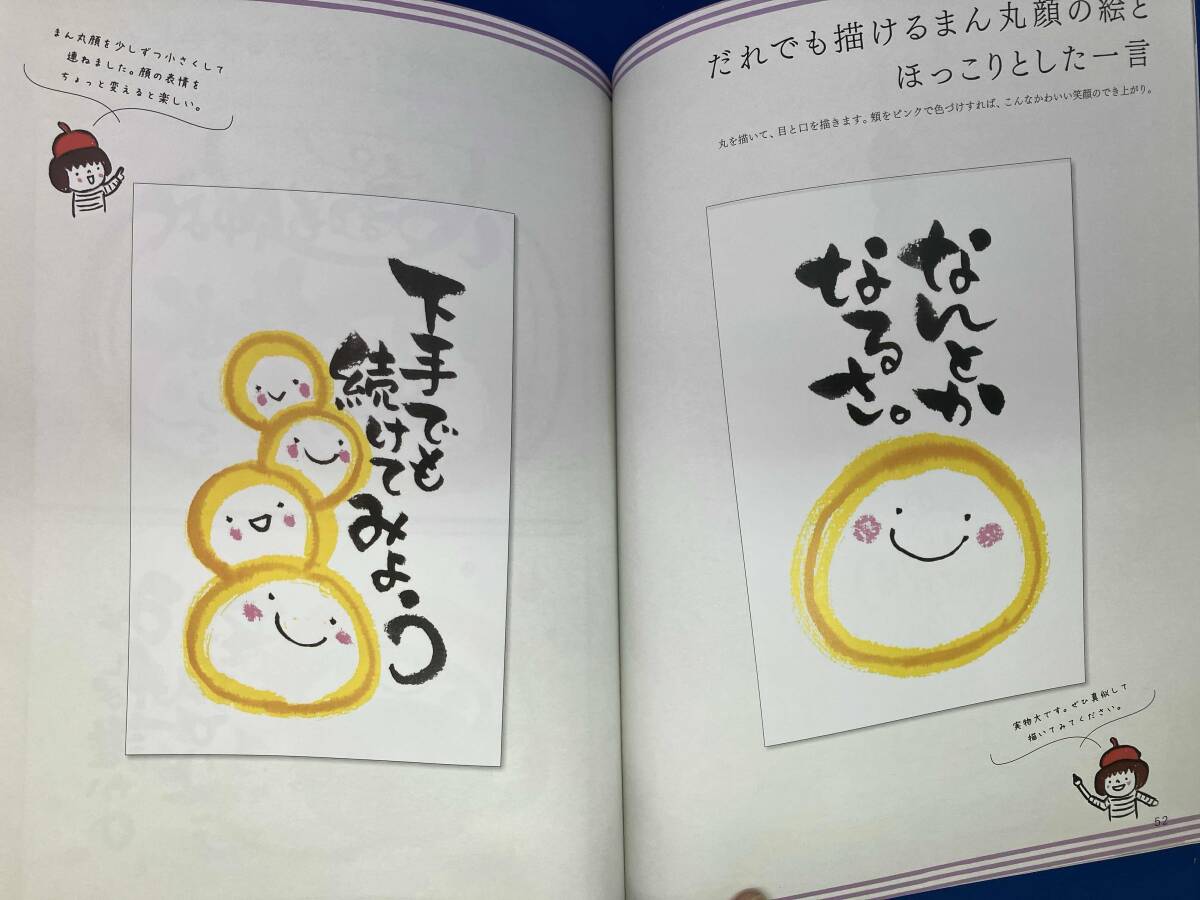 だれでも描けるまん丸顔の絵と
ほっこりとした一言
丸を描いて、目と口を描きます。頬をピンクで色づけすれば、こんなかわいい笑顔のでき上がり。
なんとか
なるさ。
実物大です。ぜひ真似して
描いてみてください。
52
まん丸顔を少しずつ小さくして
連ねました。顔の表情を
ちょっと変えると楽しい。
下手でも
続けてみよう